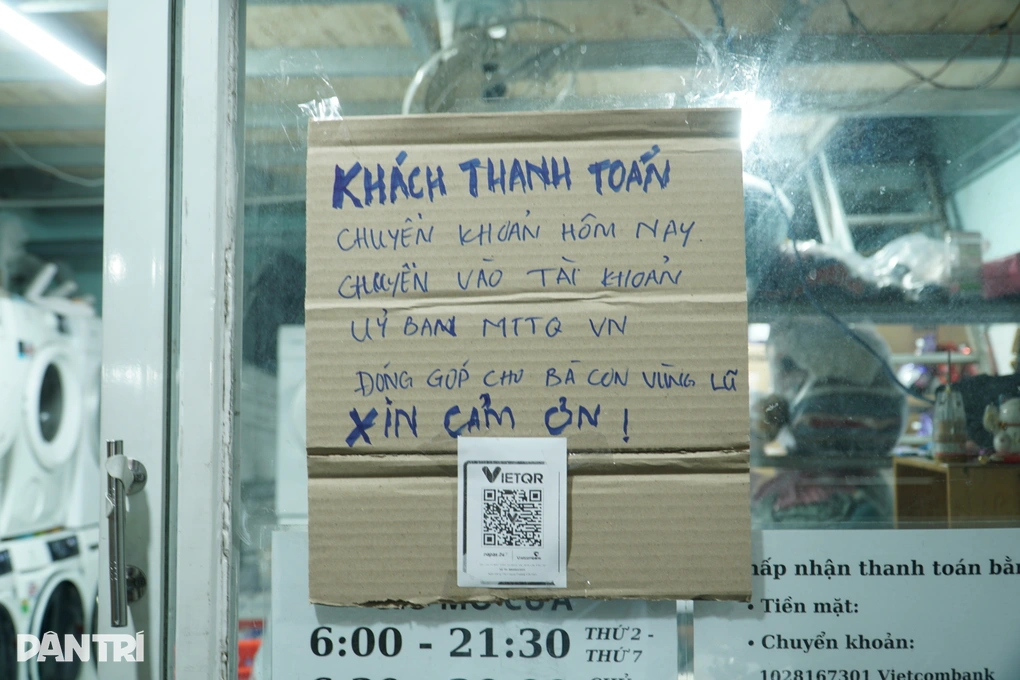 KHÁCH THANH TOÁN
CHUYỂN KHOẢN HÔM NAY.
CHUYỂN VÀO TÀI KHOẢN
UỶ BAN MTTQ VN
ĐÓNG GÓP CHO BÀ CON VÙNG LŨ
XIN CẢM ƠN!
VIETQR
napas 247
Vietcombank
MỞ CỬA
6:00 - 21:30 THỨ 2 -
THỨ 7
hấp nhận thanh toán bằn
• Tiền mặt:
• Chuyển khoản:
1028167301 Vietcombank
DÂN TRÍ